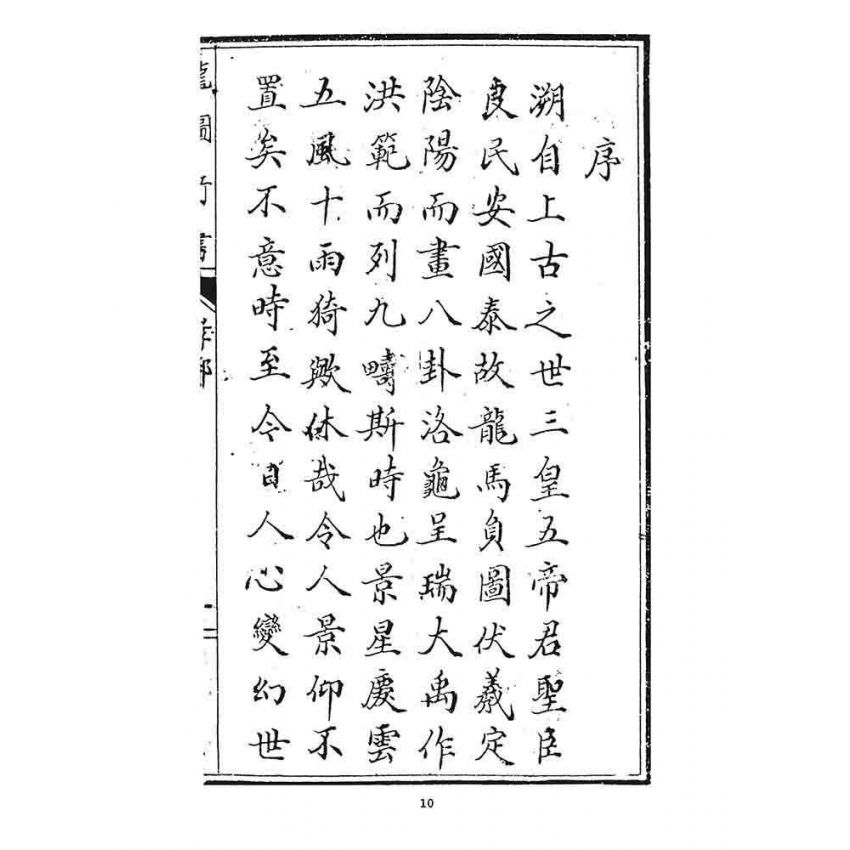 序
溯自上古之世三皇五帝君聖臣
良民安國泰故龍馬負圖伏羲定
陰陽而畫八卦洛龜呈瑞大禹作
洪範而列九疇斯時也景星慶雲
五風十雨猗歟休哉令人景仰不
置矣不意時至今日人心變幻世
10